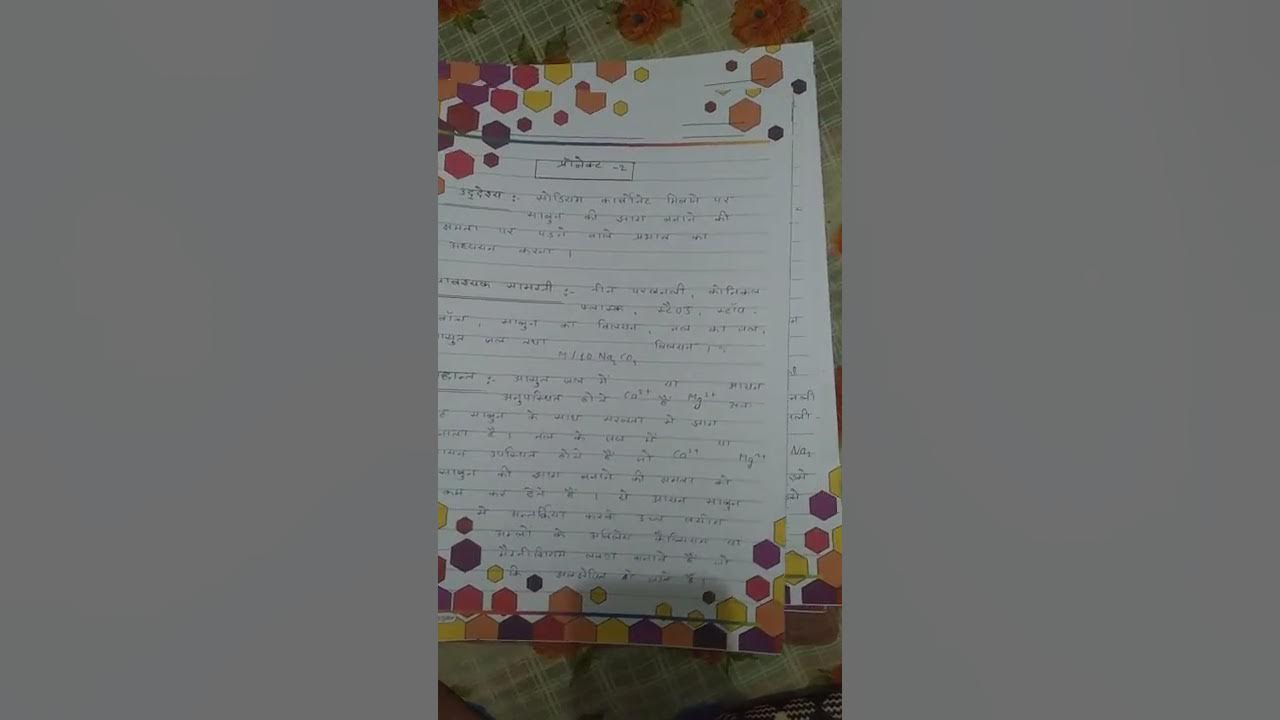 प्रोजेक्ट -2
उद्देश्य :- सोडियम कार्बोनेट मिलाने पर
साबुन की झाग बनाने की
क्षमता पर पड़ने वाले प्रभाव का
अध्ययन करना ।
आवश्यक सामग्री :- तीन परखनली, कोनिकल
फ्लास्क, स्टैण्ड, स्टॉप
वॉच, साबुन का विलयन, नल का जल,
आसुत जल तथा विलयन ।
M/10 Na2CO3
:- आसुत जल में या आयन
अनुपस्थित होने Ca2+ Mg2+
साबुन के साथ सरलता से झाग
है । नल के जल में या
उपस्थित होते हैं जो Ca2+ Mg2+
साबुन की झाग बनाने की क्षमता को
कम कर देते हैं । ये आयन साबुन
से अन्तर्क्रिया करके उच्च वसीय
अम्लों के अविलेय कैल्शियम या
मैग्नीशियम लवण बनाते हैं जो
कि अवक्षेपित हो जाते हैं ।
Na2